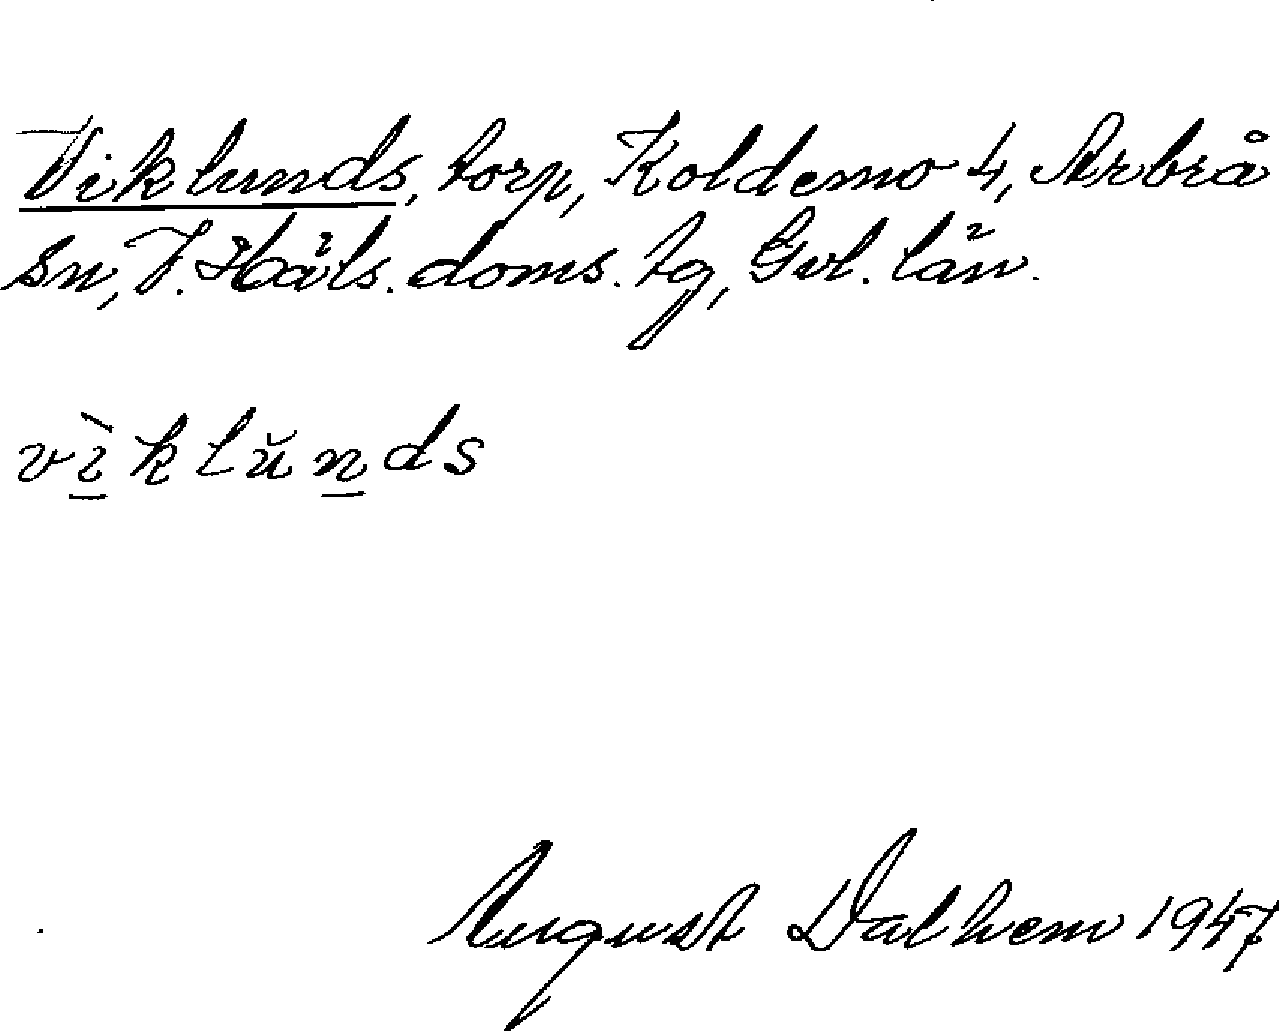 Viklunds, torp, Koldemo 4, Arbrå
sn, V. Häls. doms. tg, Gvl. län.
vì̱klŭṉds
August Dalhem 1947